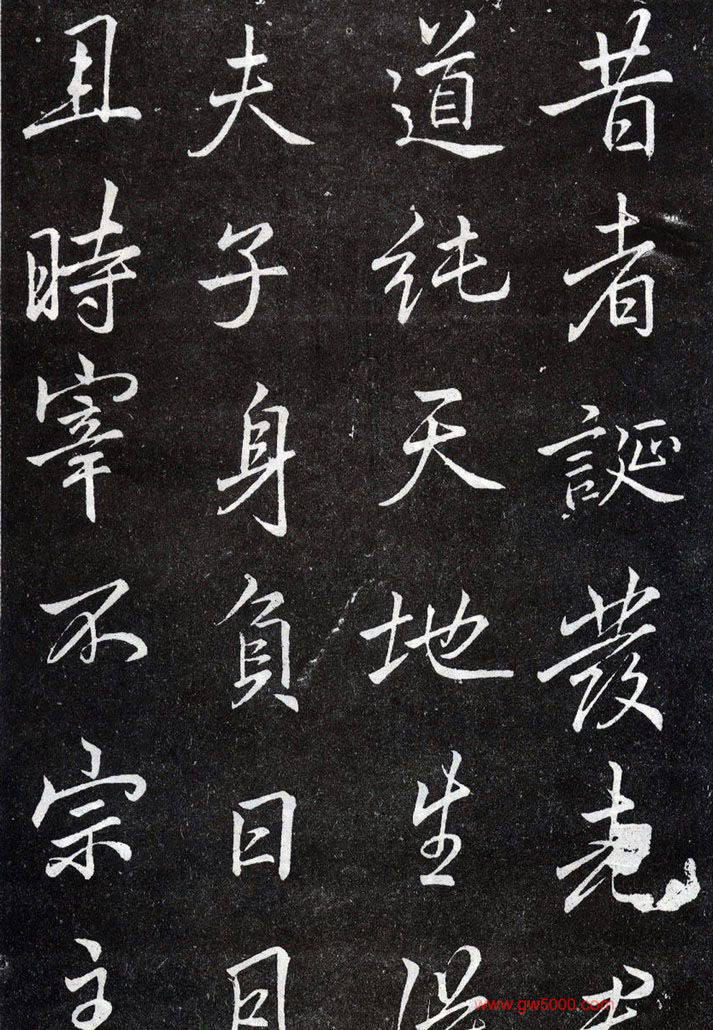 昔者誕發
道純天地生
夫子身負日
且時宰不宗主
www.gw5000.com